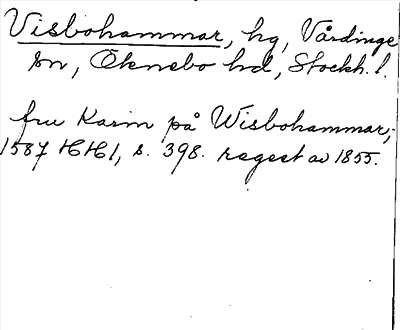 Visbohammar, hg, Vårdinge
sn, Öknebo hd, Stockh. l.
fru Karin på Wisbohammar,
1587 HH1, s. 398. regest av 1855.